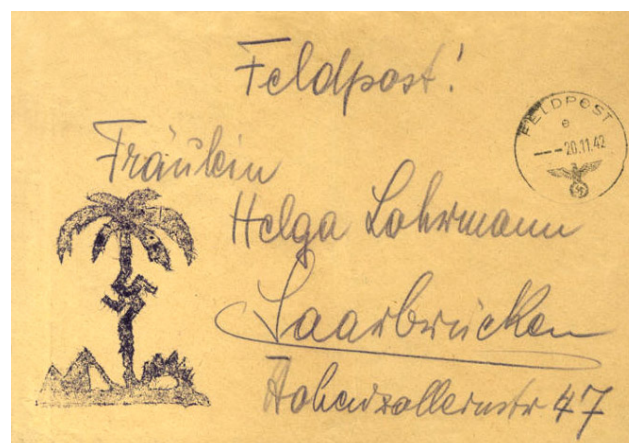 Feldpost!
FELDPOST
e
-- 20.11.42
Fräulein
Helga Lohrmann
Saarbrücken
Hohenzollernstr 47